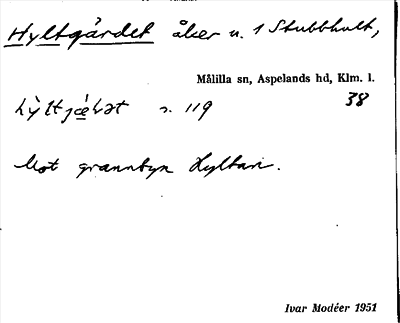 Hyltgärdet åker u. 1 Stubbhult,
Målilla sn, Aspelands hd, Klm. l.
n. 119 38
Mot grannbyn Hyltan.
Ivar Modéer 1951